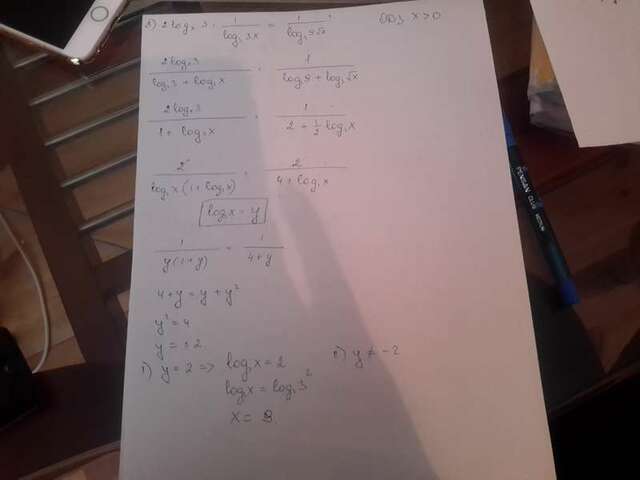 2 log_x 3 · 1/log_3 3x = 1/log_3 9√x ОДЗ x>0
2log_x 3/(log_3 3 + log_3 x) = 1/(log_3 9 + log_3 √x)
2log_x 3/(1 + log_3 x) = 1/(2 + 1/2 log_3 x)
2/(log_3 x (1 + log_3 x)) = 2/(4 + log_3 x)
log_3 x = y
1/(y(1+y)) = 1/(4+y)
4+y = y + y²
y² = 4
y = ±2
1) y = 2 => log_3 x = 2 2) y ≠ -2
log_3 x = log_3 3²
x = 9.
PENSAN